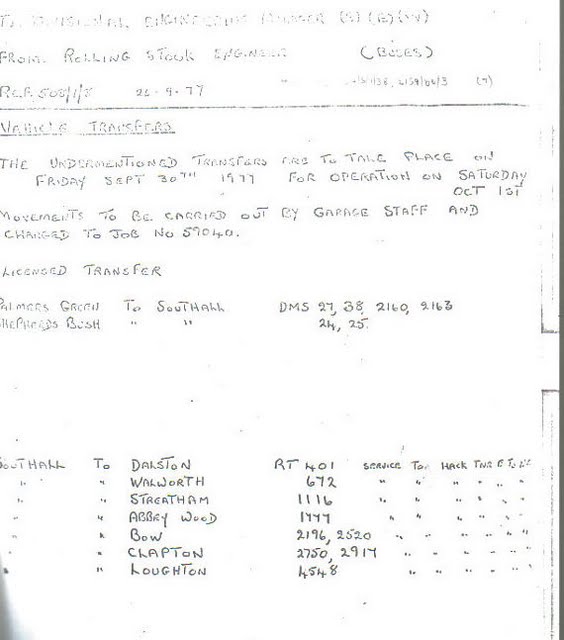 TO DIVISIONAL ENGINEERING MANAGER (S) (E) (W)
FROM ROLLING STOCK ENGINEER (BUSES)
REF. 508/1/8 26-9-77 (7)
VEHICLE TRANSFERS
THE UNDERMENTIONED TRANSFERS ARE TO TAKE PLACE ON
FRIDAY SEPT 30TH 1977 FOR OPERATION ON SATURDAY
OCT 1ST
MOVEMENTS TO BE CARRIED OUT BY GARAGE STAFF AND
CHARGED TO JOB NO 59040.
LICENSED TRANSFER
PALMERS GREEN TO SOUTHALL DMS 27, 38, 2160, 2163
SHEPHERDS BUSH " " 24, 25.
SOUTHALL TO DALSTON RT 401 SERVICE TO HACK TNR E TO
" " WALWORTH 672 " " " " " "
" " STREATHAM 1116 " " " " " "
" " ABBEY WOOD 1777 " " " " " "
" " BOW 2196, 2520 " " " " " "
" " CLAPTON 2750, 2917 " " " " " "
" " LOUGHTON 4548 " " " " " "